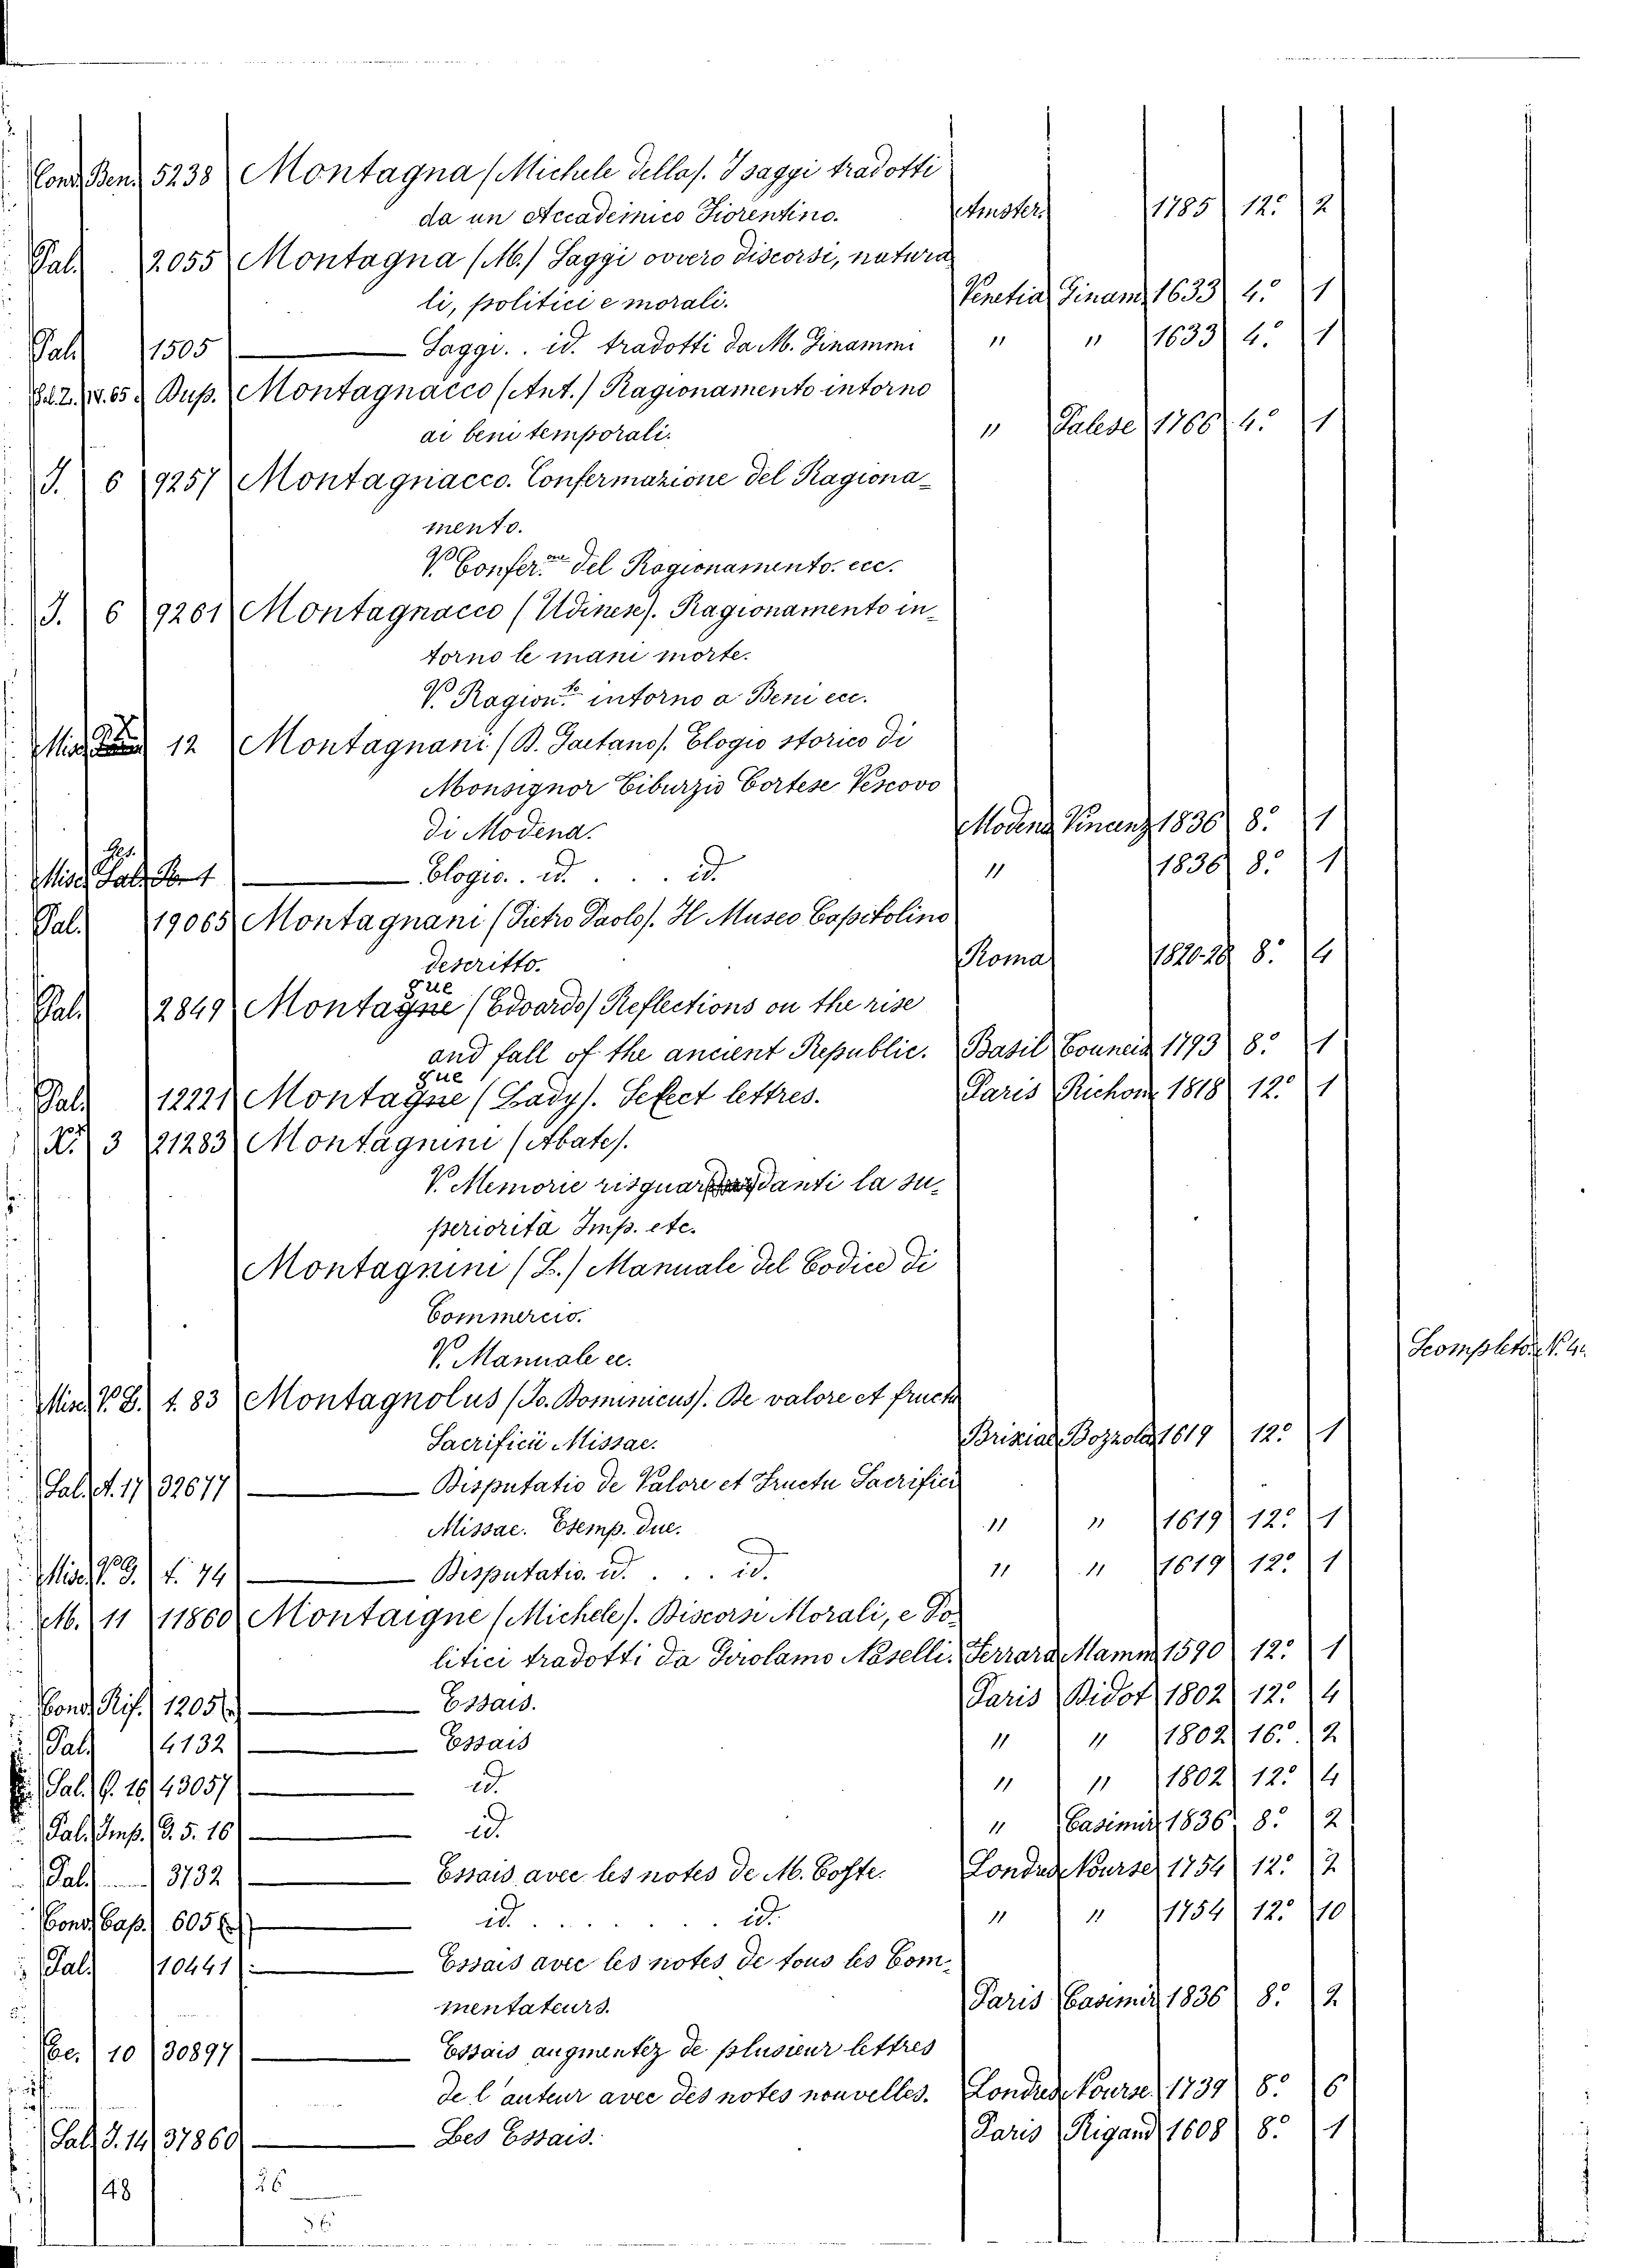 Cons. Ben. 5238 Montagna (Michele della). I saggi tradotti
da un Accademico Fiorentino. Amster. 1785 12.° 2
Pal. 2055 Montagna (M.) Saggi ovvero discorsi, natura
li, politici e morali. Venetia Ginam. 1633 4.° 1
Pal. 1505 — Saggi.. id. tradotti da M. Ginammi " " 1633 4.° 1
V. 65. Dup. Montagnacco (Ant.) Ragionamento intorno
ai beni temporali. " Palese 1766 4.° 1
J. 6 9257 Montagnacco. Confermazione del Ragiona-
mento.
V. Confer.ne del Ragionamento. ecc.
J. 6 9261 Montagnacco (Udinese). Ragionamento in-
torno le mani morte.
V. Ragion.to intorno a Beni ecc.
Misc. 12 Montagnani (B. Gaetano). Elogio storico di
Monsignor Tiburzio Cortese Vescovo
di Modena. Modena Vincenz. 1836 8.° 1
Misc. Pal. 1 — Elogio.. id. . . . id. " 1836 8.° 1
Pal. 19065 Montagnani (Pietro Paolo). Il Museo Capitolino
descritto. Roma 1820-28 8.° 4
gue
Pal. 2849 Montagne (Edoardo) Reflections on the rise
and fall of the ancient Republic. Basil Tourneis. 1793 8.° 1
gue
Pal. 12221 Montagne (Lady). Select lettres. Paris Richom. 1818 12.° 1
X. 3 21283 Montagnini (Abate).
V. Memorie risguardanti la su-
periorità Imp. etc.
Montagnini (L.) Manuale del Codice di
Commercio.
V. Manuale ec. Scompleto. N. 4.
Misc. V. G. t. 83 Montagnolus (Jo. Dominicus). De valore et fructu
Sacrificii Missae. Brixiae Bozzola 1619 12.° 1
Sal. A. 17 32677 — Disputatio de Valore et Fructu Sacrificii
Missae. Esemp. due. " " 1619 12.° 1
Misc. V. G. t. 74 — Disputatio. id. . . . id. " " 1619 12.° 1
M. 11 11860 Montaigne (Michele). Discorsi Morali, e Po-
litici tradotti da Girolamo Naselli. Ferrara Mamm. 1590 12.° 1
Cons. Rif. 1205 — Essais. Paris Didot 1802 12.° 4
Pal. 4132 — Essais " " 1802 16.° 2
Sal. G. 16 43057 — id. " " 1802 12.° 4
Pal. Imp. G. 5. 16 — id. " Casimir. 1836 8.° 2
Pal. 3732 — Essais avec les notes de M. Coste. Londres Nourse 1754 12.° 2
Cons. Cap. 605 — id. . . . . . id. " " 1754 12.° 10
Pal. 10441 — Essais avec les notes de tous les Com-
mentateurs. Paris Casimir. 1836 8.° 2
10 30897 — Essais augmentez de plusieur lettres
de l'auteur avec des notes nouvelles. Londres Nourse. 1739 8.° 6
Sal. J. 14 37860 — Les Essais. Paris Rigaud 1608 8.° 1
48 26